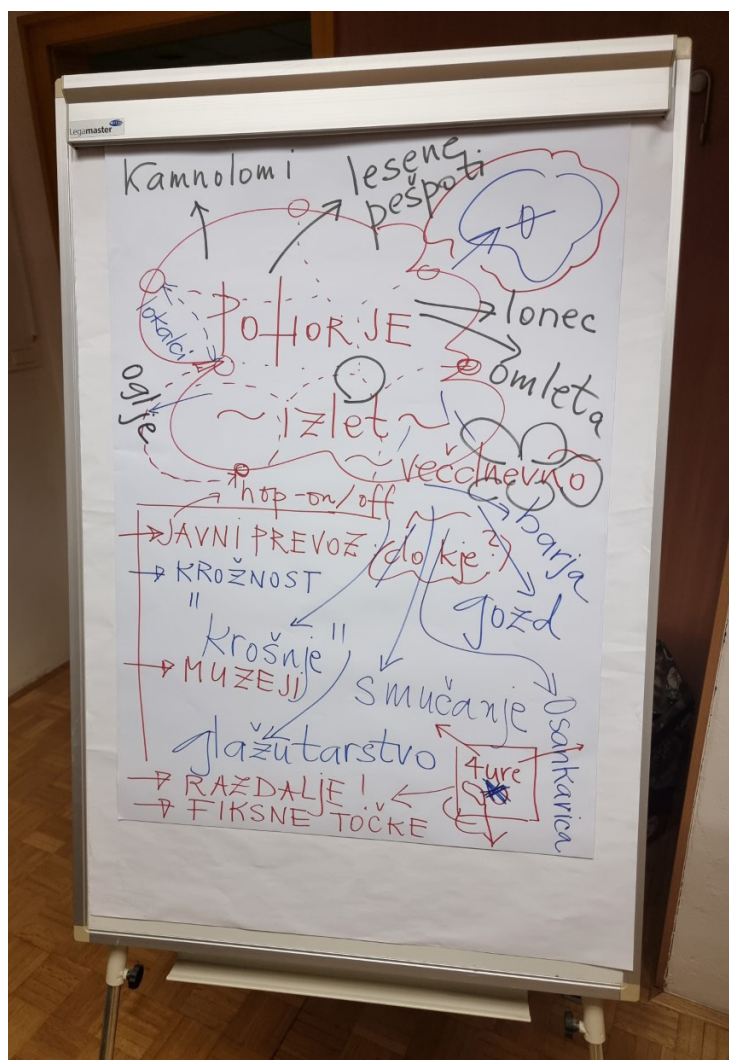 Legamaster
Kamnolomi
lesene
pešpoti
lokalci
POHORJE
lonec
omleta
oglje
~ izlet ~
~ večdnevno
hop-on/off
JAVNI PREVOZ (do kje?)
barja
KROŽNOST
gozd
"krošnje"
MUZEJI
smučanje
Osankarica
glažutarstvo
4 ure
RAZDALJE!
FIKSNE TOČKE